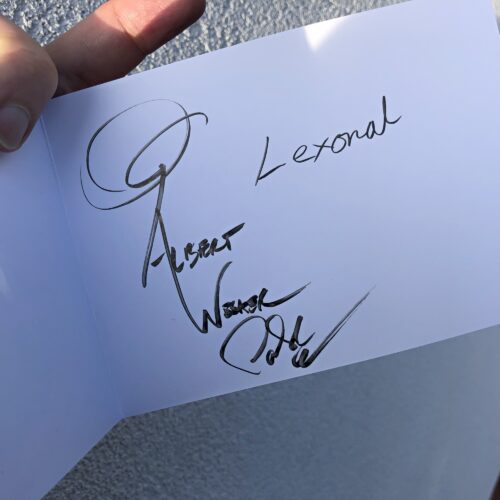 Lexonal
Albert
Wesker